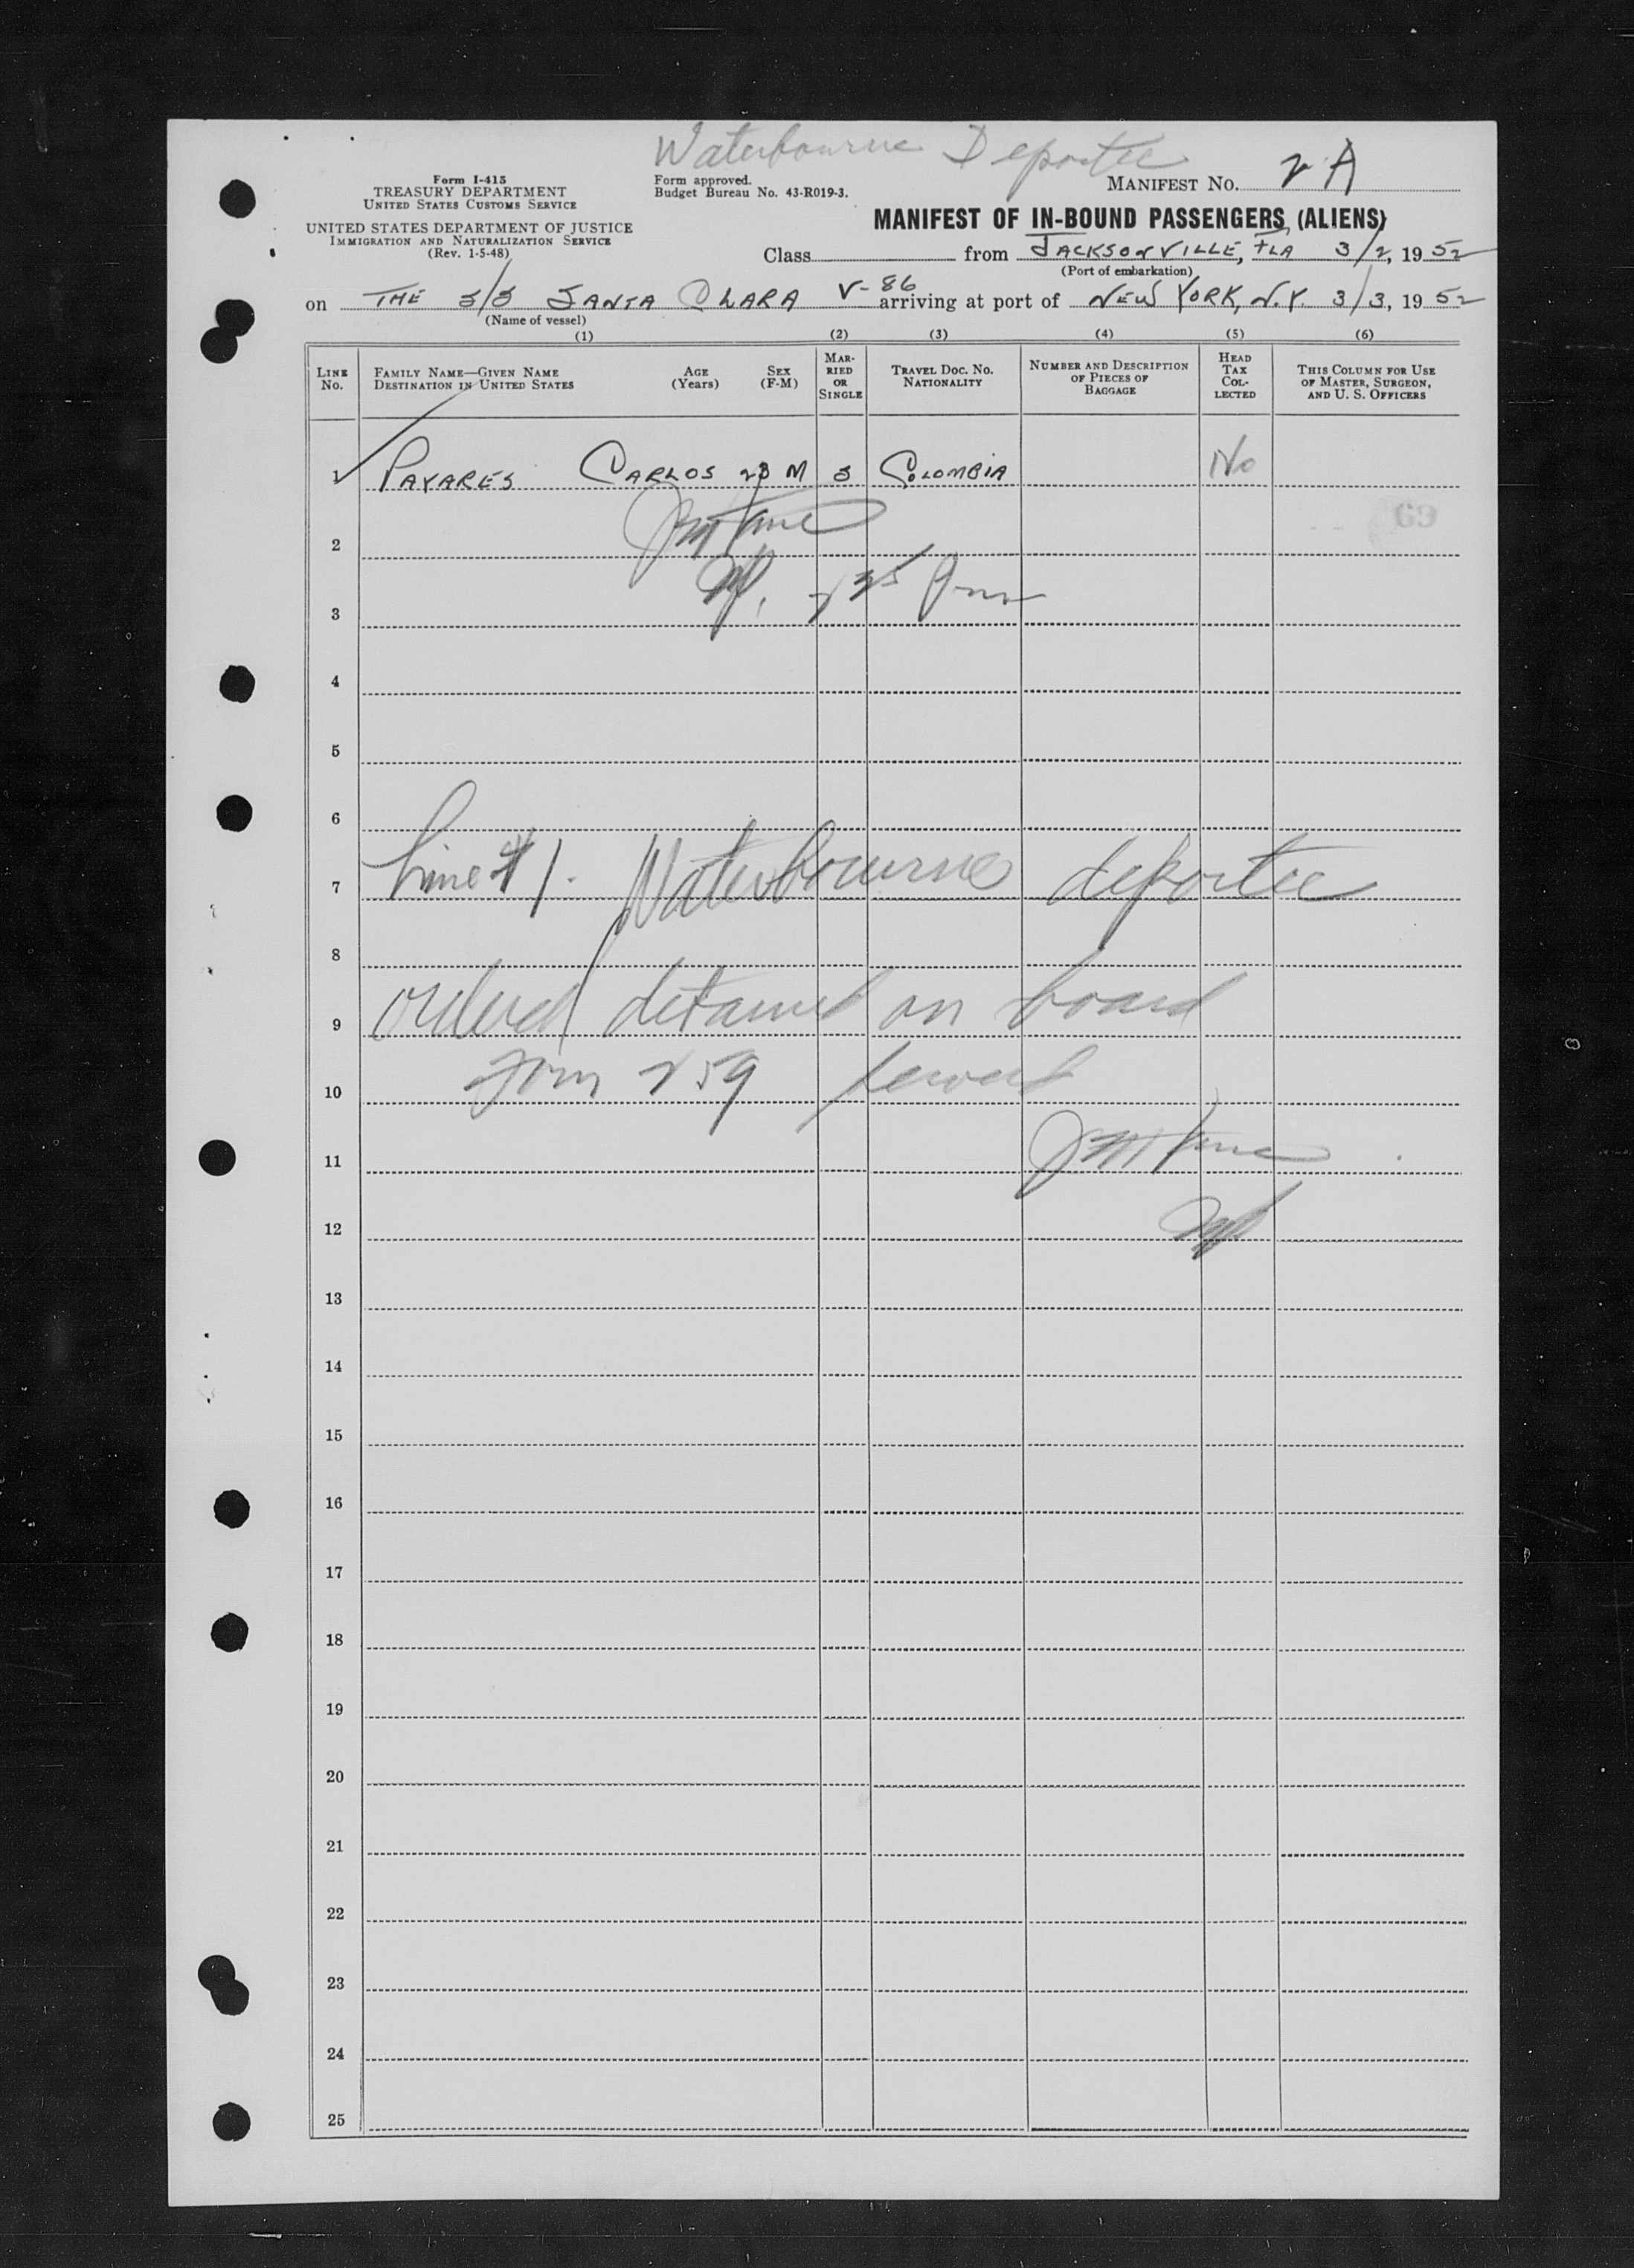 Waterbourne Deportee
Form I-415
TREASURY DEPARTMENT
UNITED STATES CUSTOMS SERVICE
UNITED STATES DEPARTMENT OF JUSTICE
IMMIGRATION AND NATURALIZATION SERVICE
(Rev. 1-5-48)
Form approved.
Budget Bureau No. 43-R019-3.
MANIFEST NO. 2A
MANIFEST OF IN-BOUND PASSENGERS (ALIENS)
Class from JACKSONVILLE, FLA 3/2, 1952
(Port of embarkation)
on THE S/S SANTA CLARA V-86 arriving at port of NEW YORK, N.Y. 3/3, 1952
(Name of vessel)
(1) (2) (3) (4) (5) (6)
LINE No.
FAMILY NAME—GIVEN NAME
DESTINATION IN UNITED STATES
AGE (Years)
SEX (F-M)
MARRIED OR SINGLE
TRAVEL DOC. NO. NATIONALITY
NUMBER AND DESCRIPTION OF PIECES OF BAGGAGE
HEAD TAX COLLECTED
THIS COLUMN FOR USE OF MASTER, SURGEON, AND U. S. OFFICERS
1 PAYARES CARLOS 23 M S COLOMBIA No
2
3
4
5
6
7 Line #1. Waterbourne deportee
8
9 ordered detained on board
10 Form 259 served
11
12
13
14
15
16
17
18
19
20
21
22
23
24
25